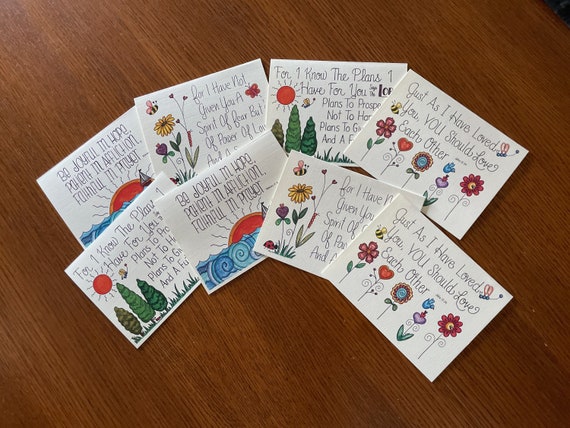 Be Joyful In Hope,
Patient In Affliction,
Faithful In Prayer.
For I Have Not
Given You A
Spirit Of Fear But
Of Power Of
And A S
For I Know The Plans I
Have For You Says the LOR
Plans To Prosper
Not To Ha
Plans To Gi
And A Fu
Just As I Have Loved
You, YOU Should Love
Each Other
For I Know The Plans I
Have For You
Plans To
Not To
Plans To Gi
And A Fu
Be Joyful In Hope,
Patient In Affliction,
Faithful In Prayer.
For I Have No
Given You
Spirit Of
Of Po
And A
Just As I Have Loved
You, YOU Should Love
Each Other